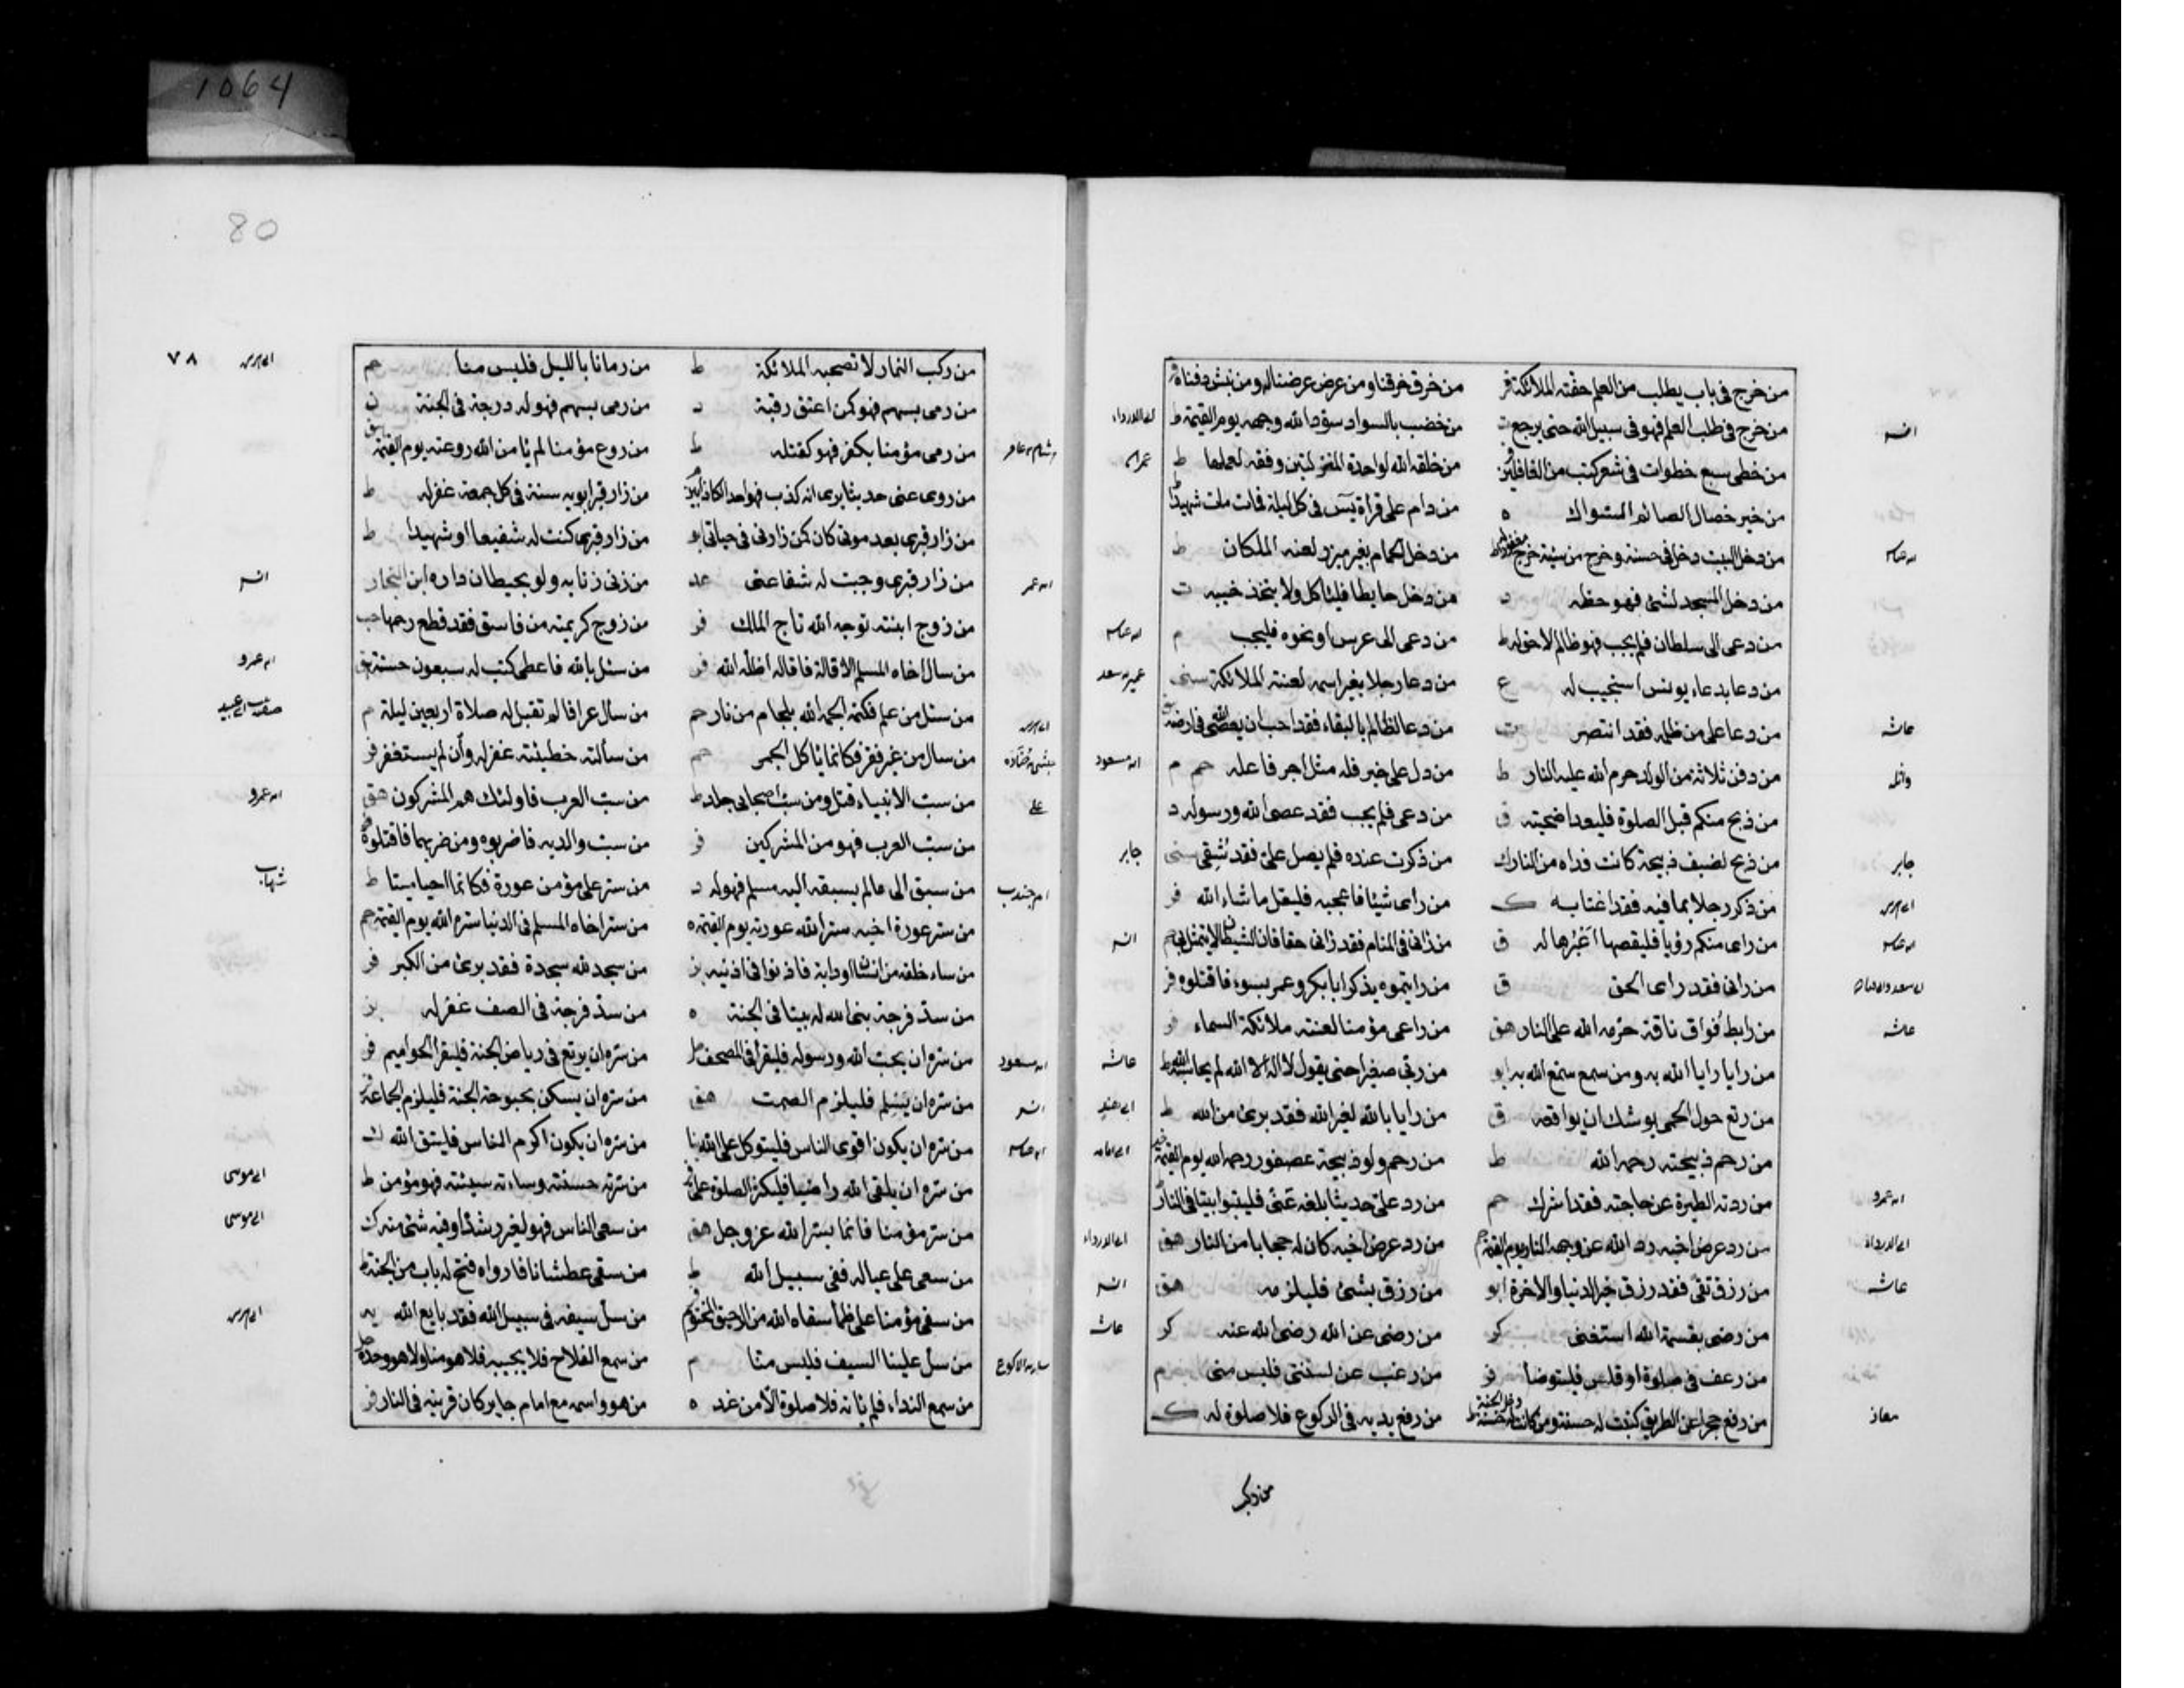 1064
من خرج فى باب يطلب من العلم حفته الملائكة فر من خرق خرقناه ومن عرض عرضنا له ومن نبش دفناه
انس من خرج فى طلب العلم فهو فى سبيل الله حتى يرجع ت من خضب بالسواد سود الله وجهه يوم القيمة ط
من خطى سبع خطوات فى شعر كتب من الغافلين من خلقه الله لواحدة المنزلتين وفقه لعملها ط
من خير خصال الصائم السواك ه من دام على قراة يس فى كل ليلة فمات مات شهيدا
من دخل البيت دخل فى حسنة وخرج من سيئة من دخل الحمام بغير ميزر لعنه الملكان ط
من دخل المسجد لشئ فهو حظه د من دخل حايطا فلياكل ولا يتخذ خبنه ت
من دعى الى سلطان فلم يجب فهو ظالم لا حق له ط من دعى الى عرس او نحوه فليجب م
من دعا بدعاء يونس استجيب له ع من دعا رجلا بغير اسمه لعنته الملائكة سنى عمير بن سعد
من دعا على من ظلمه فقد انتصر ت من دعا لظالم بالبقاء فقد احب ان يعصى الله فى ارضه
من دفن ثلاثة من الولد حرم الله عليه النار ط من دل على خير فله مثل اجر فاعله حم م
من ذبح منكم قبل الصلوة فليعد اضحيته ق من دعى فلم يجب فقد عصى الله ورسوله د
جابر من ذبح لضيف ذبيحة كانت فداه من النار ك من ذكرت عنده فلم يصل على فقد شقى سنى جابر
من ذكر رجلا بما فيه فقد اغتابه ك من راى شيئا فاعجبه فليقل ما شاء الله فر
من راى منكم رؤيا فليقصها اعبرها له ق من رانى فى المنام فقد رانى حقا فان الشيطان لا يتمثل بى انس
من رانى فقد راى الحق ق من رايتموه يذكر ابا بكر وعمر بسوء فاقتلوه فر
من رابط فواق ناقة حرمه الله على النار هق من راعى مؤمنا لعنته ملائكة السماء فر
من رايا رايا الله به ومن سمع سمع الله به ابو من ربى صغيرا حتى يقول لا اله الا الله لم يحاسبه الله ط
من رتع حول الحمى يوشك ان يواقعه ق من رايا بالله لغير الله فقد برئ من الله ط
من رحم ذبيحته رحمه الله ط من رحم ولو ذبيحة عصفور رحمه الله يوم القيمة
من ردته الطيرة عن حاجته فقد اشرك حم من رد على حديثا بلغه عنى فليتبوا بيتا فى النار
من رد عرض اخيه رد الله عن وجهه النار يوم القيمة من رد عرض اخيه كان له حجابا من النار هق
من رزق تقى فقد رزق خير الدنيا والاخرة ابو من رزق بشئ فليلزمه هق انس
من رضى بقسمة الله استغنى كر من رضى عن الله رضى الله عنه كر
من رعف فى صلوة او قلس فليتوضأ فر من رغب عن سنتى فليس منى م
معاذ من رفع حجرا عن الطريق كتبت له حسنة من رفع يديه فى الركوع فلا صلوة له ك
80
٧٨
من ركب النمار لا تصحبه الملائكة ط من رمانا بالليل فليس منا حم
من رمى بسهم فهو كمن اعتق رقبة د من رمى بسهم فهو له درجة فى الجنة ن
من رمى مؤمنا بكفر فهو كقتله ط من روع مؤمنا لم يامن الله روعته يوم القيمة
من روى عنى حديثا يرى انه كذب فهو احد الكاذبين من زار قبر ابويه سنة فى كل جمعة غفر له ط
من زار قبرى بعد موتى كان كمن زارنى فى حياتى من زار قبرى كنت له شفيعا او شهيدا ط
من زار قبرى وجبت له شفاعتى عد من زنى زنا به ولو بحيطان داره ابن النجار انس
من زوج ابنته توجه الله تاج الملك فر من زوج كريمته من فاسق فقد قطع رحمها حب
من سال اخاه المسلم الاقالة فاقاله اظله الله فر من سئل بالله فاعطى كتب له سبعون حسنة هق
من سئل من علم فكتمه الجمه الله بلجام من نار حم من سال عرافا لم تقبل له صلاة اربعين ليلة م
من سال من غير فقر فكانما ياكل الجمر حم من سائته خطيئته غفر له وان لم يستغفر فر
على من سب الانبياء قتل ومن سب اصحابى جلد ط من سب العرب فاولئك هم المشركون هق
من سب العرب فهو من المشركين فر من سب والديه فاضربوه ومن ضربهما فاقتلوه
من سبق الى ما لم يسبقه اليه مسلم فهو له د من ستر على مؤمن عورة فكانما احيا ميتا ط شهاب
من ستر عورة اخيه ستر الله عورته يوم القيمة ه من ستر اخاه المسلم فى الدنيا ستره الله يوم القيمة حم
من ساء خلقه من انسان او دابة فاذنوا فى اذنيه من سجد لله سجدة فقد برئ من الكبر فر
من سد فرجة بنى الله له بيتا فى الجنة ه من سد فرجة فى الصف غفر له بز
من سره ان يحب الله ورسوله فليقرا فى المصحف من سره ان يرتع فى رياض الجنة فليقرا الحواميم فر
من سره ان يسلم فليلزم الصمت هق من سره ان يسكن بحبوحة الجنة فليلزم الجماعة
من سره ان يكون اقوى الناس فليتوكل على الله من سره ان يكون اكرم الناس فليتق الله ك
من سره ان يلقى الله راضيا فليكثر الصلوة على من سرته حسنته وساءته سيئته فهو مؤمن ط
من سر مؤمنا فانما يسر الله عز وجل هق من سعى الناس فهو لغير رشده او فيه شئ منه ك
من سعى على عياله ففى سبيل الله ط من سقى عطشانا فارواه فتح له باب من الجنة ط
من سقى مؤمنا على ظما سقاه الله من الرحيق المختوم من سل سيفه فى سبيل الله فقد بايع الله
من سل علينا السيف فليس منا م من سمع الفلاح فلا يجيبه فلا هو منا ولا هو وحده
من سمع النداء فلم ياته فلا صلوة الا من عذر ه من هو واسمه مع امام جاير كان قرينه فى النار فر